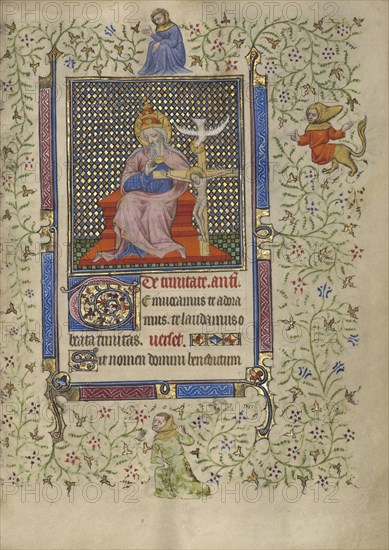 De trinitate. anti.
Te inuocamus te adora
mus. te laudamus o
beata trinitas. uerset.
Sit nomen domini benedictum
PHOTO12